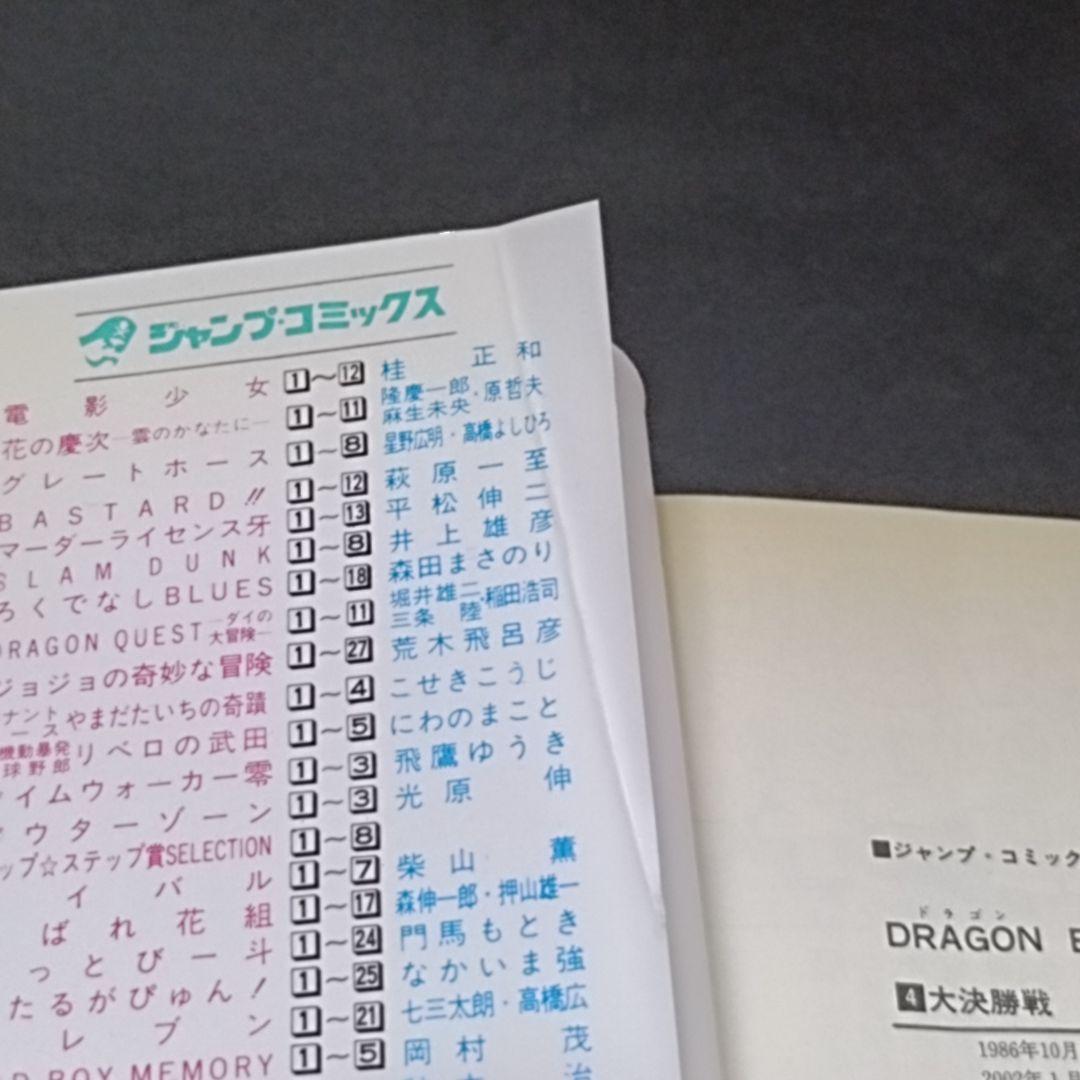 ジャンプ・コミックス
電影少女 1～12 桂正和
花の慶次―雲のかなたに― 1～11 隆慶一郎・原哲夫 麻生未央
グレートホース 1～8 星野広明・高橋よしひろ
BASTARD!! 1～12 萩原一至
マーダーライセンス牙 1～13 平松伸二
SLAM DUNK 1～8 井上雄彦
ろくでなしBLUES 1～18 森田まさのり
DRAGON QUEST―ダイの大冒険― 1～11 堀井雄二・稲田浩司 三条陸
ジョジョの奇妙な冒険 1～27 荒木飛呂彦
ナント ース やまだたいちの奇蹟 1～4 こせきこうじ
機動暴発 球野郎 リベロの武田 1～5 にわのまこと
イムウォーカー零 1～3 飛鷹ゆうき
ウターゾーン 1～3 光原伸
ップ☆ステップ賞SELECTION 1～8
イバル 1～7 柴山薫
ばれ花組 1～17 森伸一郎・押山雄一
っとび一斗 1～24 門馬もとき
たるがぴゅん! 1～25 なかいま強
レブン 1～21 七三太朗・高橋広
BOY MEMORY 1～5 岡村茂
治
■ジャンプ・コミック
ドラゴン
DRAGON
4 大決勝戦
1986年10月
2002年1月